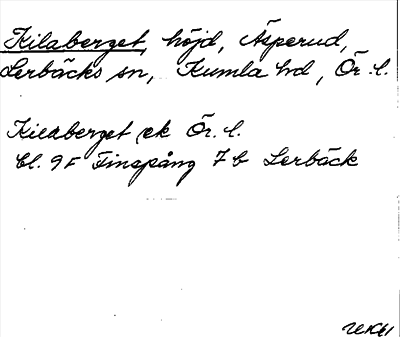 Kilaberget, höjd, Äsperud,
Lerbäcks sn, Kumla hd, Ör. l.
Kilaberget ek Ör. l.
bl. 9F Finspång 7b Lerbäck